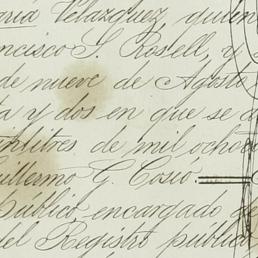 aría Velazquez, quien
ncisco S. Rosell, y
de nueve de Agosto
ta y dos en que se
de mil ochoci
uillermo G. Cosío.
público encargado de
del Registro público